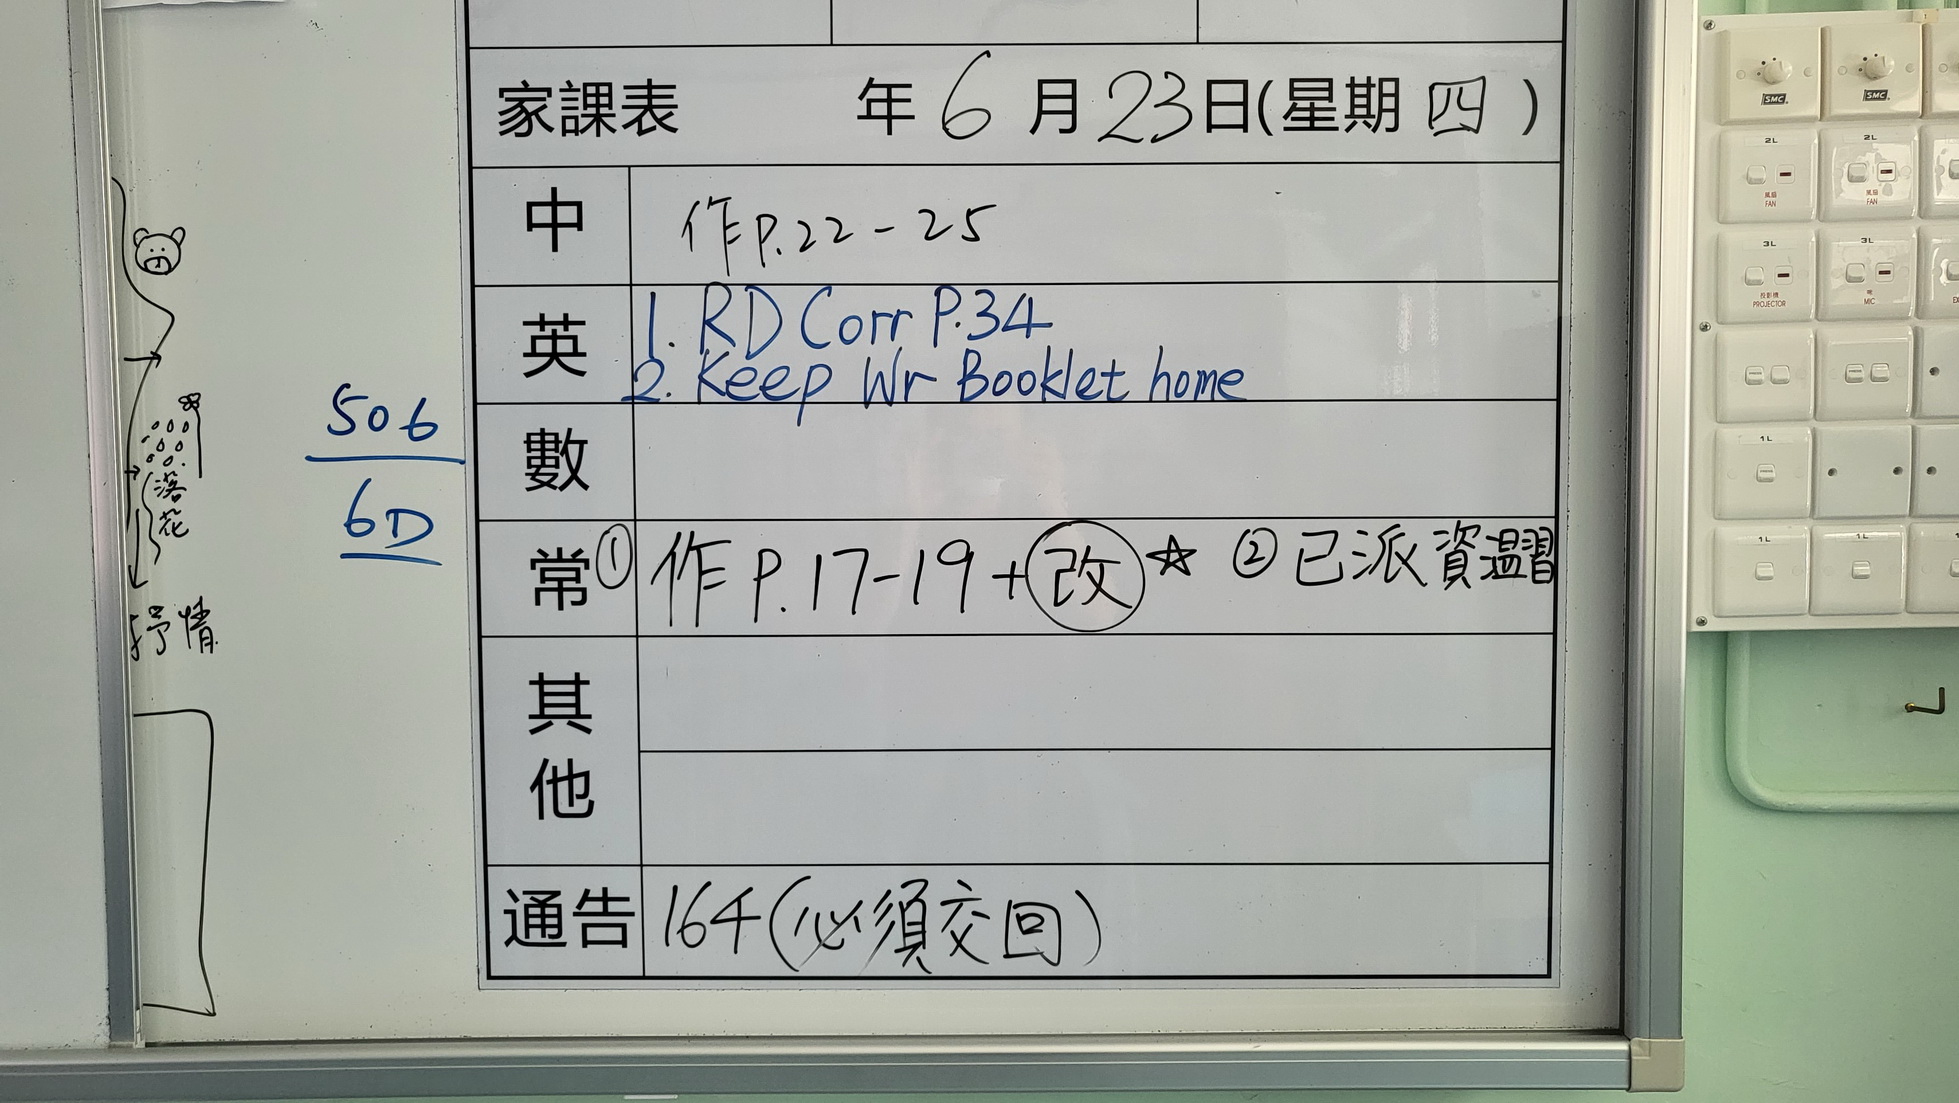 家課表 年 6 月 23 日(星期 四 )
中 作 P.22-25
英 1. RD Corr P.34
2. Keep Wr Booklet home
數
常 ① 作 P.17-19 + 改 ☆ ② 已派資溫習
其他
通告 164 (必須交回)
506
6D
落花
抒情
SMC
SMC
2L
風扇
FAN
2L
風扇
FAN
3L
投影機
PROJECTOR
3L
MIC
1L
1L
1L